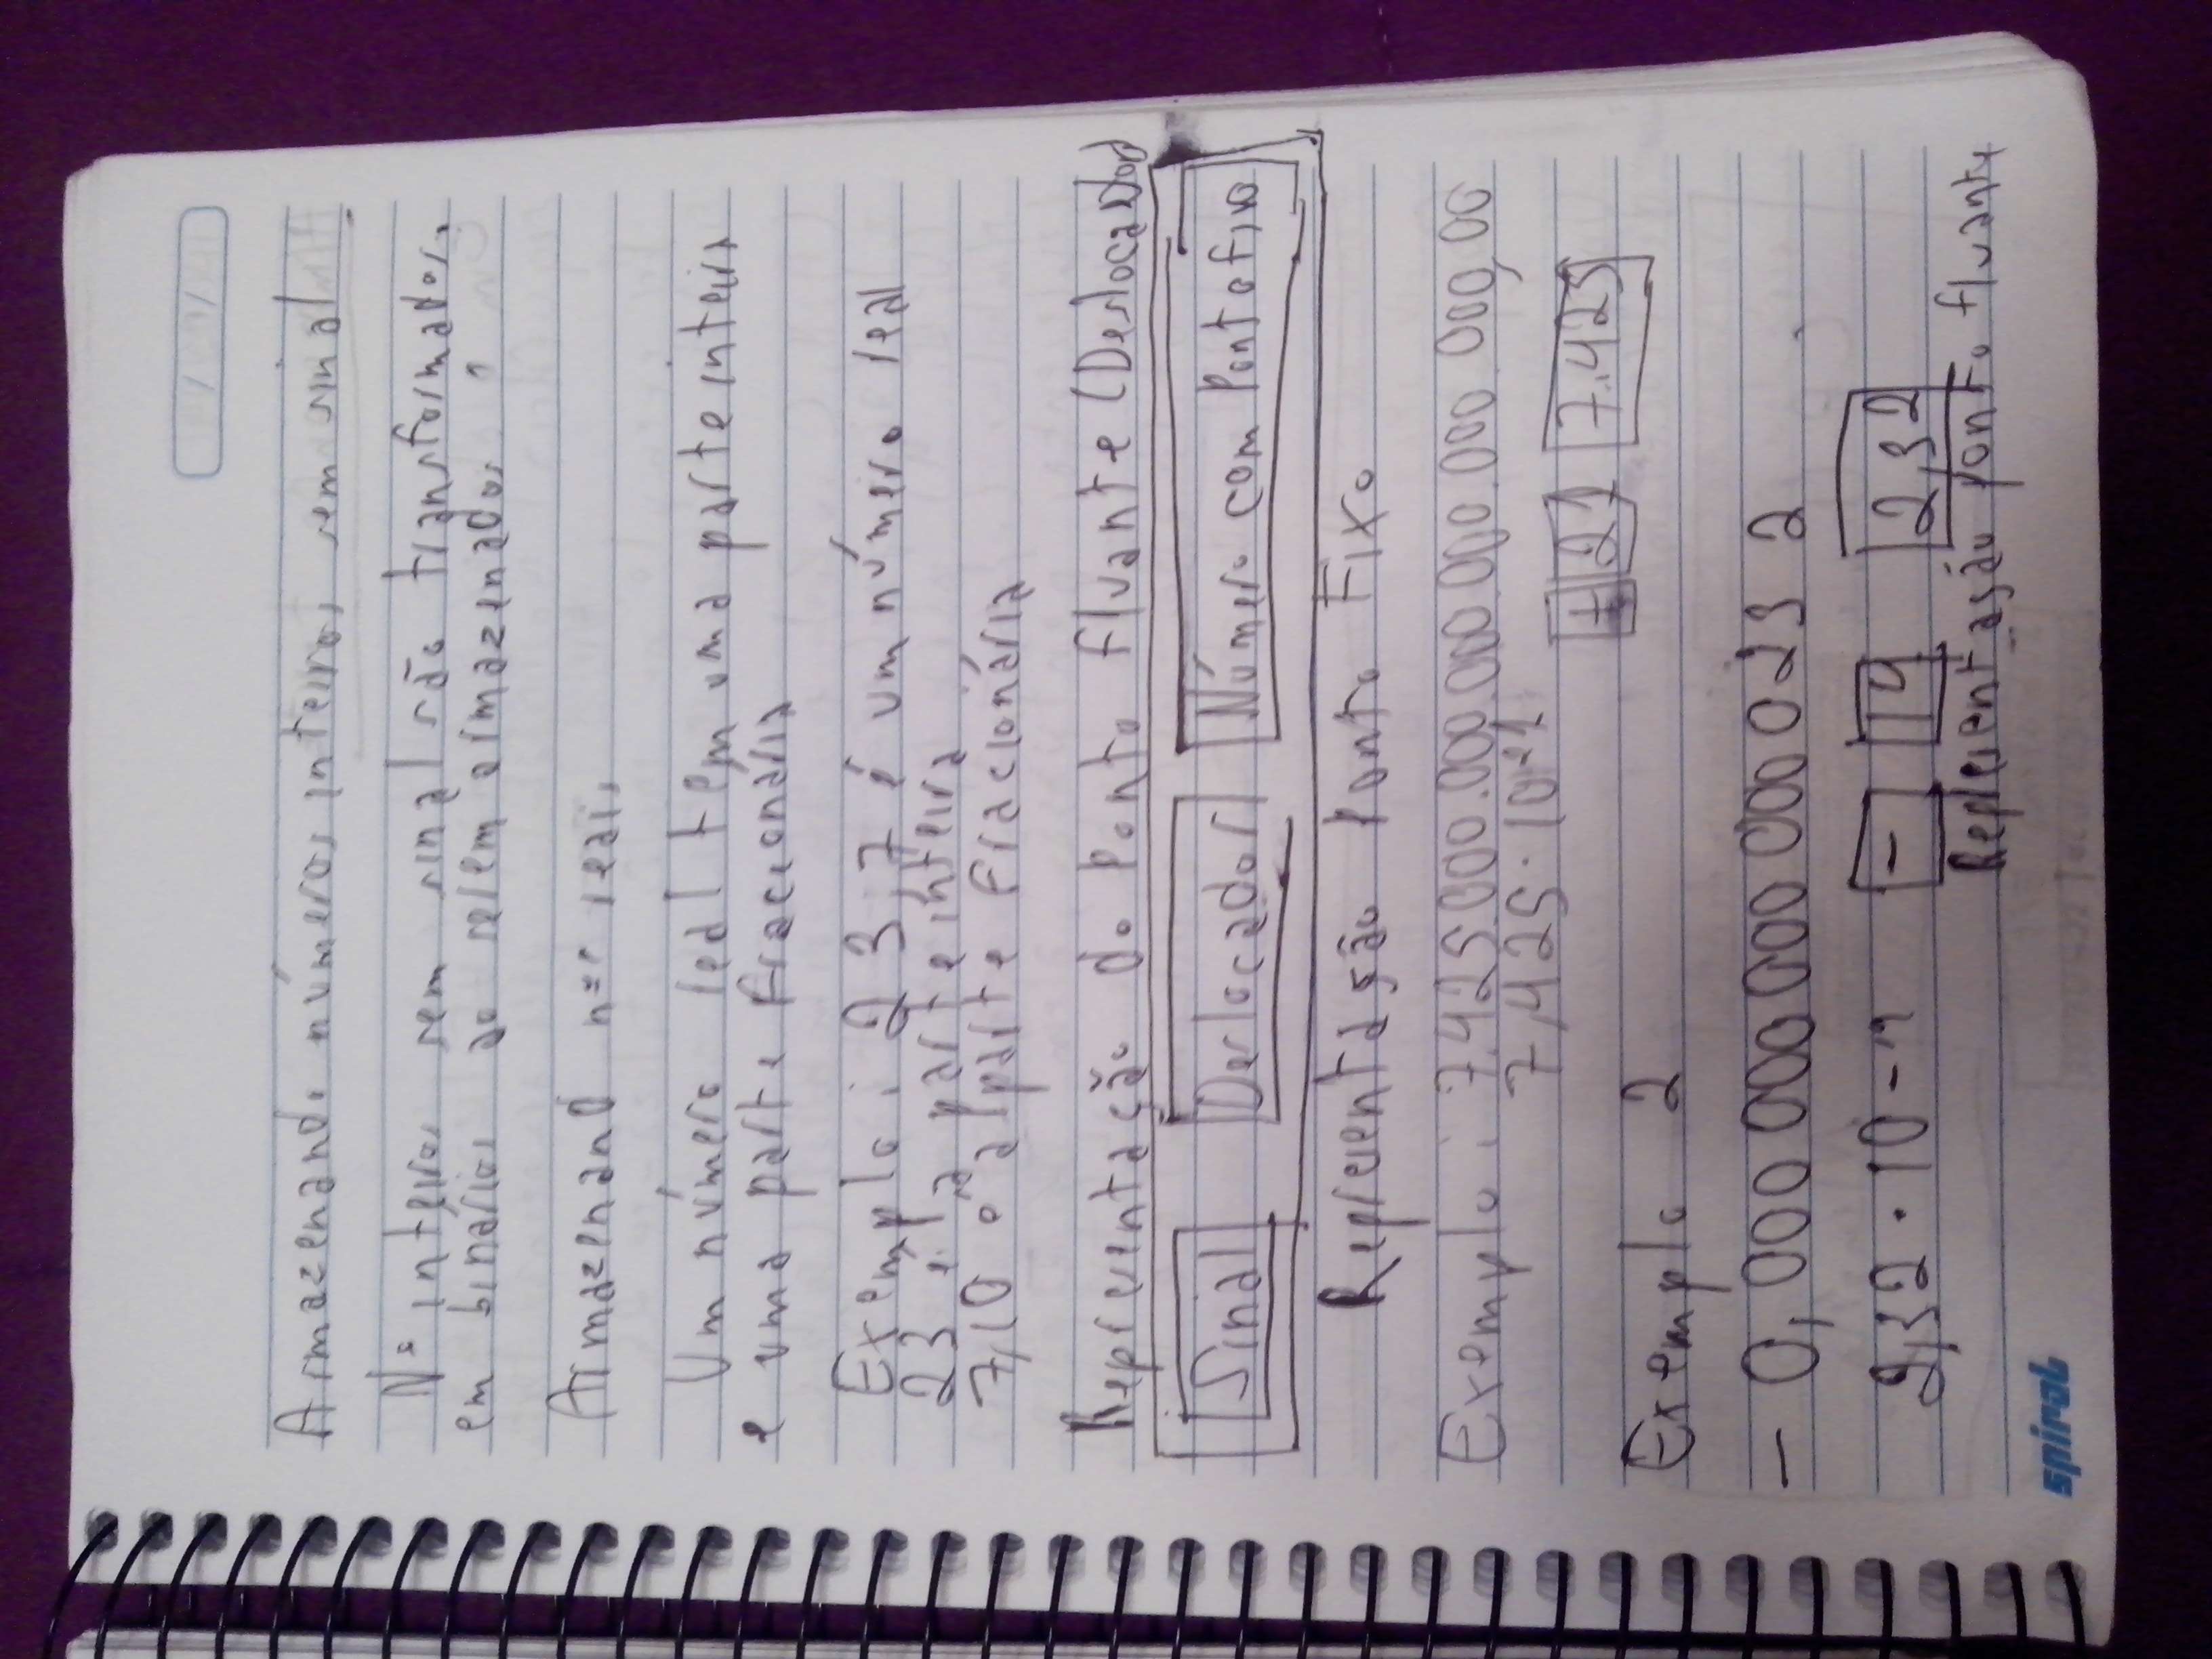 Armazenando números inteiros sem sinal
Nº inteiros sem sinal são transformados
em binários ao serem armazenados
Armazenand nºs reais
Um número real tem uma parte inteira
e uma parte fracionária
Exemplo: 23,7 é um número real
23 é a parte inteira
7,10 é a parte fracionária
Representação do Ponto Fluvante (Deslocador)
Sinal Deslocador Número com Ponto Fixo
Representação Ponto Fixo
Exemplo: 7.425.000.000.000.000.000.000,00
7,425 · 10²¹
+ 21 7.425
Exemplo 2
- 0,000 000 000 000 023 2
2,32 · 10 - - 14 2,32
Representação ponto fluvante
spiral